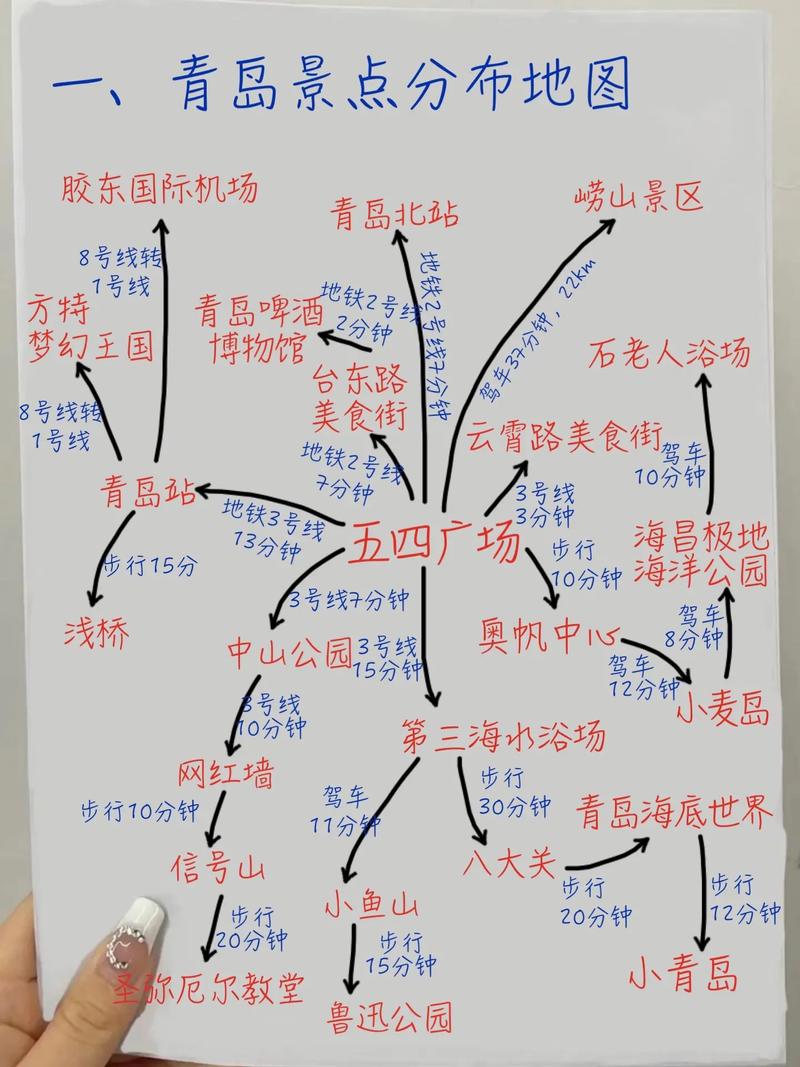 一、青岛景点分布地图
胶东国际机场
青岛北站
崂山景区
8号线转
1号线
地铁2号线7分钟
驾车37分钟，22km
方特
梦幻王国
青岛啤酒
博物馆
地铁2号线
2分钟
石老人浴场
台东路
美食街
8号线转
1号线
云霄路美食街
地铁2号线
7分钟
驾车
10分钟
青岛站
地铁3号线
13分钟
3号线
3分钟
五四广场
海昌极地
海洋公园
步行15分
步行
10分钟
3号线7分钟
浅桥
中山公园
3号线
15分钟
奥帆中心
驾车
8分钟
驾车
12分钟
小麦岛
3号线
10分钟
第三海水浴场
网红墙
驾车
11分钟
步行
30分钟
步行10分钟
青岛海底世界
信号山
八大关
小鱼山
步行
20分钟
步行
12分钟
步行
20分钟
步行
15分钟
圣弥厄尔教堂
鲁迅公园
小青岛